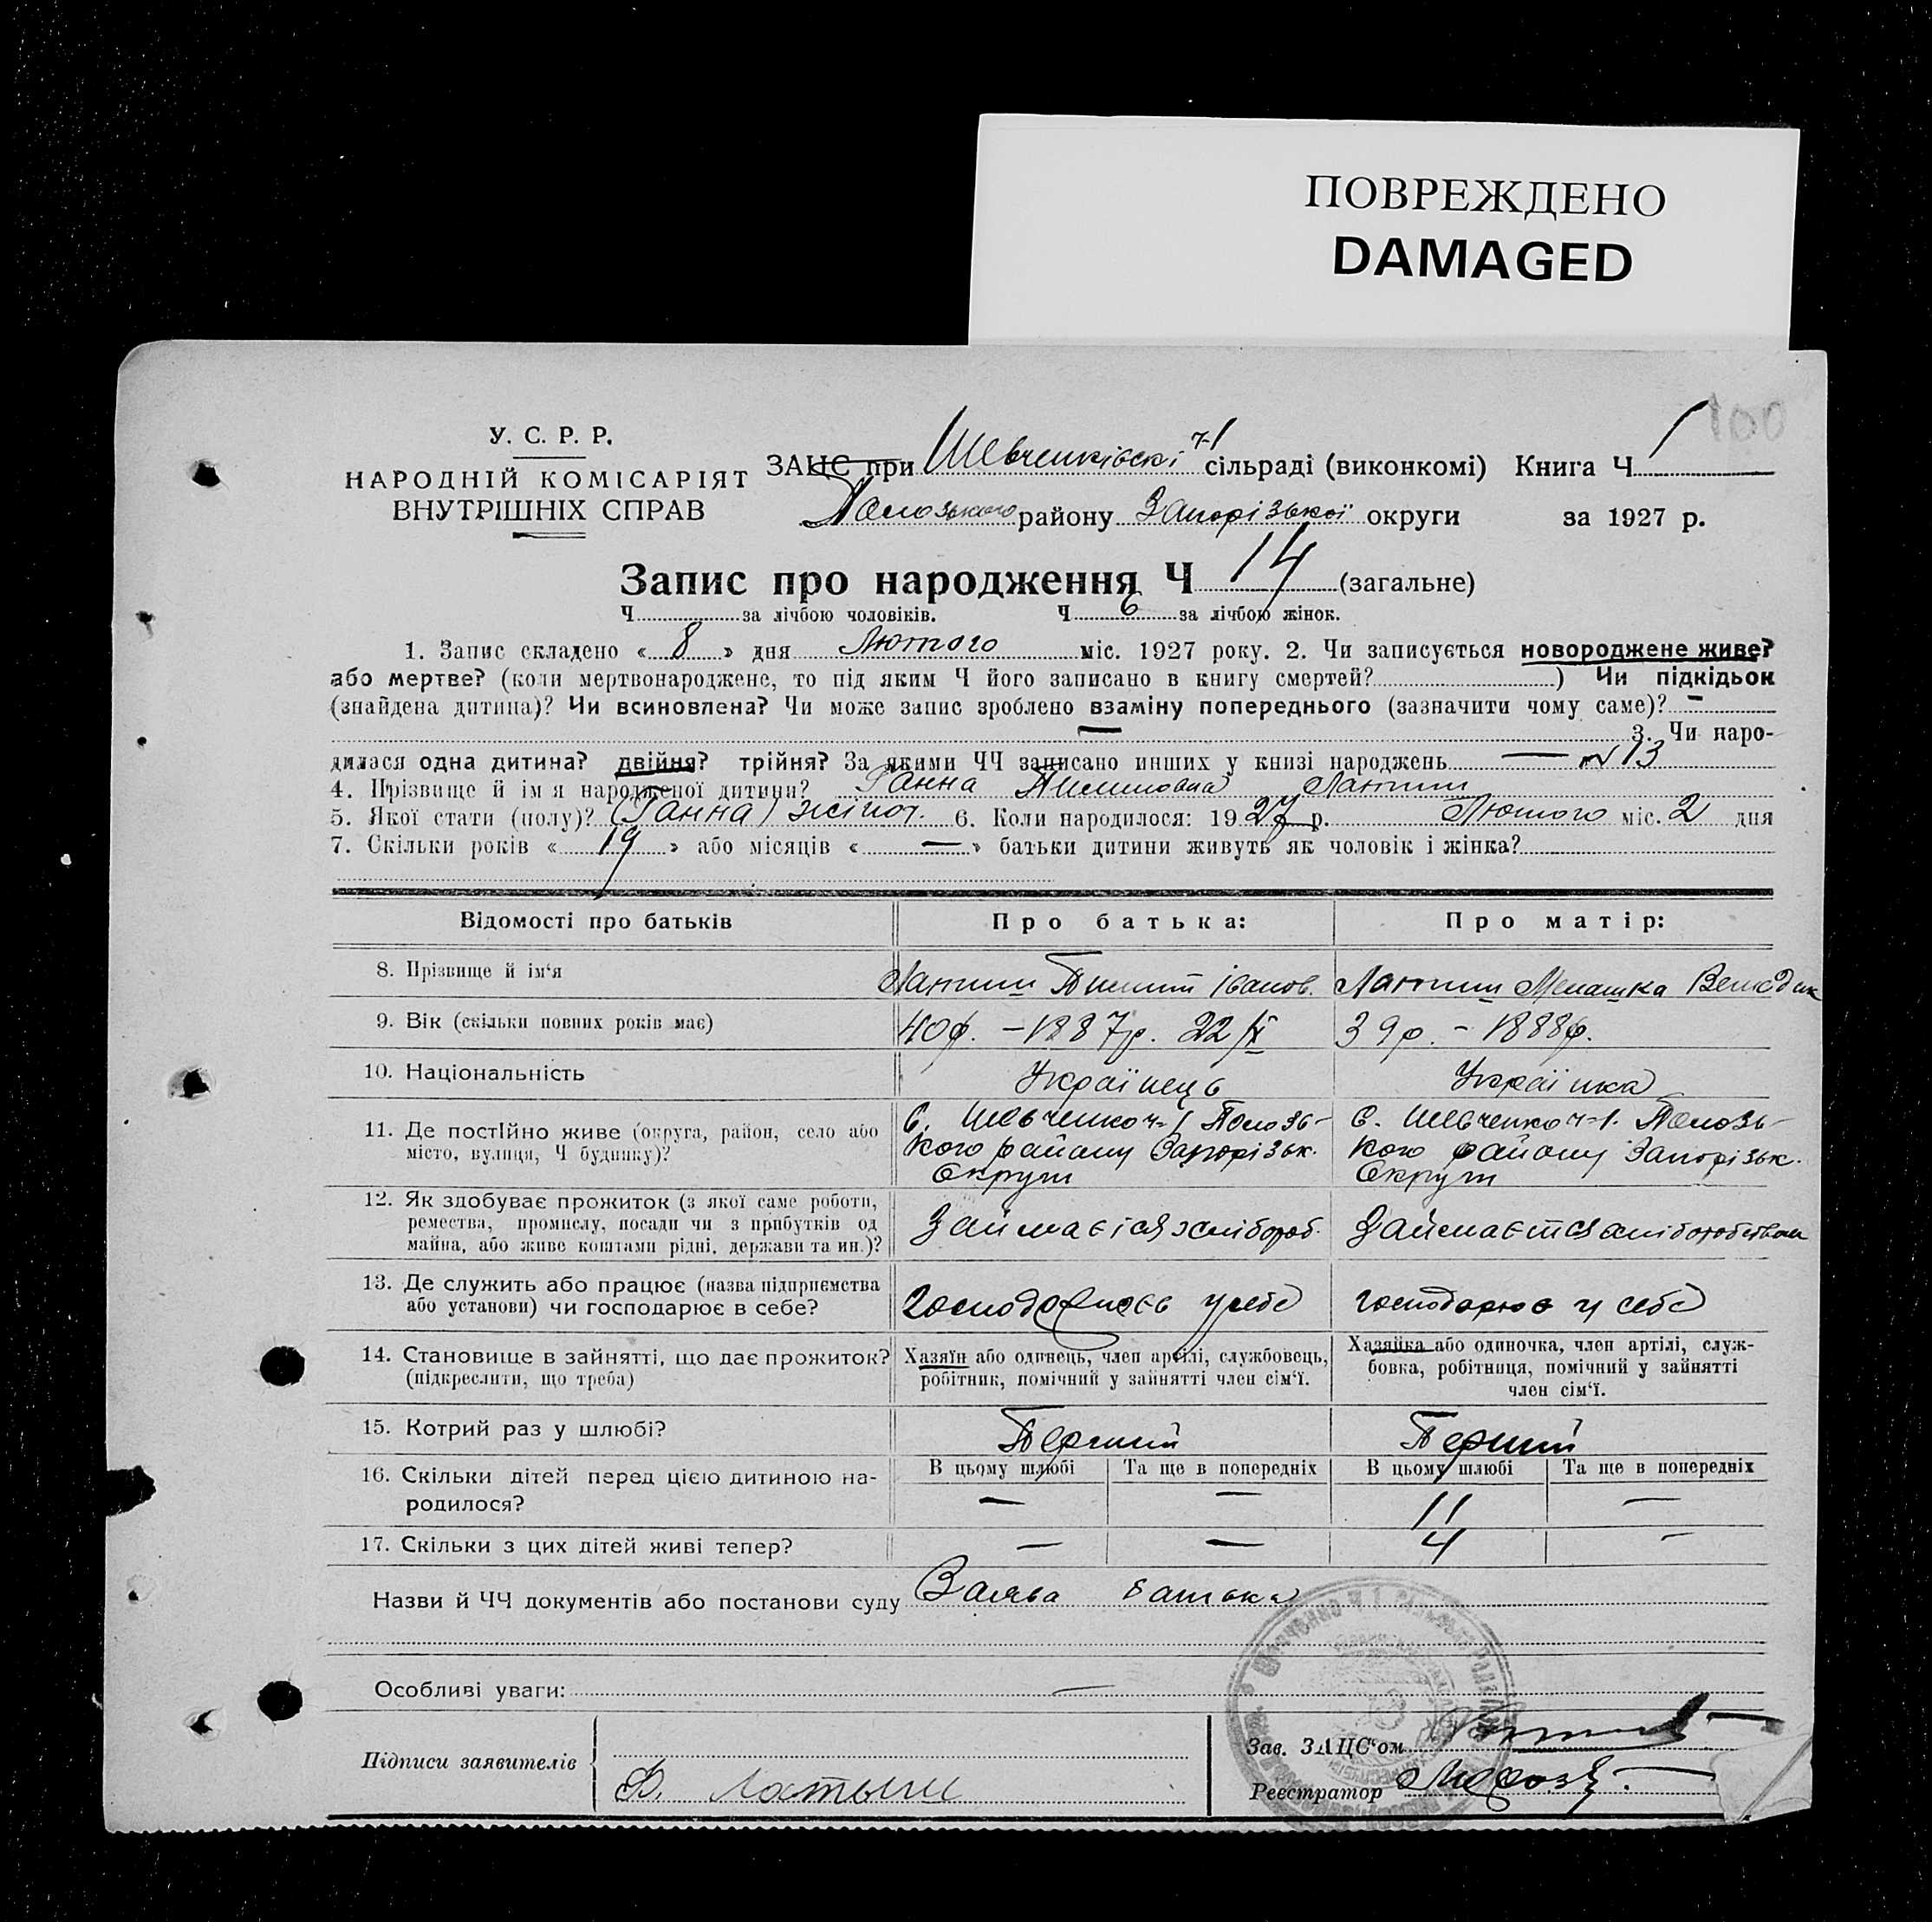 ПОВРЕЖДЕНО
DAMAGED
100
У. С. Р. Р.
НАРОДНІЙ КОМІСАРІЯТ
ВНУТРІШНІХ СПРАВ
ЗАЦС при Шевченківскі ч-1 сільраді (виконкомі) Книга Ч 1
Полозького району Запорізької округи за 1927 р.
Запис про народження Ч 14 (загальне)
Ч за лічбою чоловіків. Ч 6 за лічбою жінок.
1. Запис складено « 8 » дня Лютого міс. 1927 року. 2. Чи записується новороджене живе?
або мертве? (коли мертвонароджене, то під яким Ч його записано в книгу смертей? ) Чи підкідьок
(знайдена дитина)? Чи всиновлена? Чи може запис зроблено взаміну попереднього (зазначити чому саме)? —
— 3. Чи наро-
дилася одна дитина? двійня? трійня? За якими ЧЧ записано инших у книзі народжень — №13
4. Прізвище й імя народженої дитини? Ганна Латиш
5. Якої стати (полу)? (Ганна) жіноч. 6. Коли народилося: 1927 р. Лютого міс. 2 дня
7. Скільки років « 19 » або місяців « — » батьки дитини живуть як чоловік і жінка?
Відомості про батьків Про батька: Про матір:
8. Прізвище й ім‘я Латиш Іванов. Латиш
9. Вік (скільки повних років має) 40р. – 1887р. 22/X 39р. – 1888р.
10. Національність Українець Українка
11. Де постійно живе (округа, район, село або
місто, вулиця, Ч будинку)?
С. Шевченко ч-1 Полозь-
кого району Запорізьк.
Округи
С. Шевченко ч-1. Полозь-
кого району Запорізьк.
Округи
12. Як здобуває прожиток (з якої саме роботи,
ремества, промислу, посади чи з прибутків од
майна, або живе коштами рідні, держави та ин.)?
Займається хлібороб.
Займається хліборобством
13. Де служить або працює (назва підприємства
або установи) чи господарює в себе?
Господарює у себе
господарює у себе
14. Становище в зайнятті, що дає прожиток?
(підкреслити, що треба)
Хазяїн або одинець, член артілі, службовець,
робітник, помічний у зайнятті член сім‘ї.
Хазяйка або одиночка, член артілі, служ-
бовка, робітниця, помічний у зайнятті
член сім‘ї.
15. Котрий раз у шлюбі? Перший Перший
16. Скільки дітей перед цією дитиною на-
родилося?
В цьому шлюбі Та ще в попередніх В цьому шлюбі Та ще в попередніх
— — 11 —
17. Скільки з цих дітей живі тепер? — — 4 —
Назви й ЧЧ документів або постанови суду Заява батька
Особливі уваги: —
Підписи заявителів
Латыш
Зав. ЗАЦС‘ом
Реєстратор Мороз